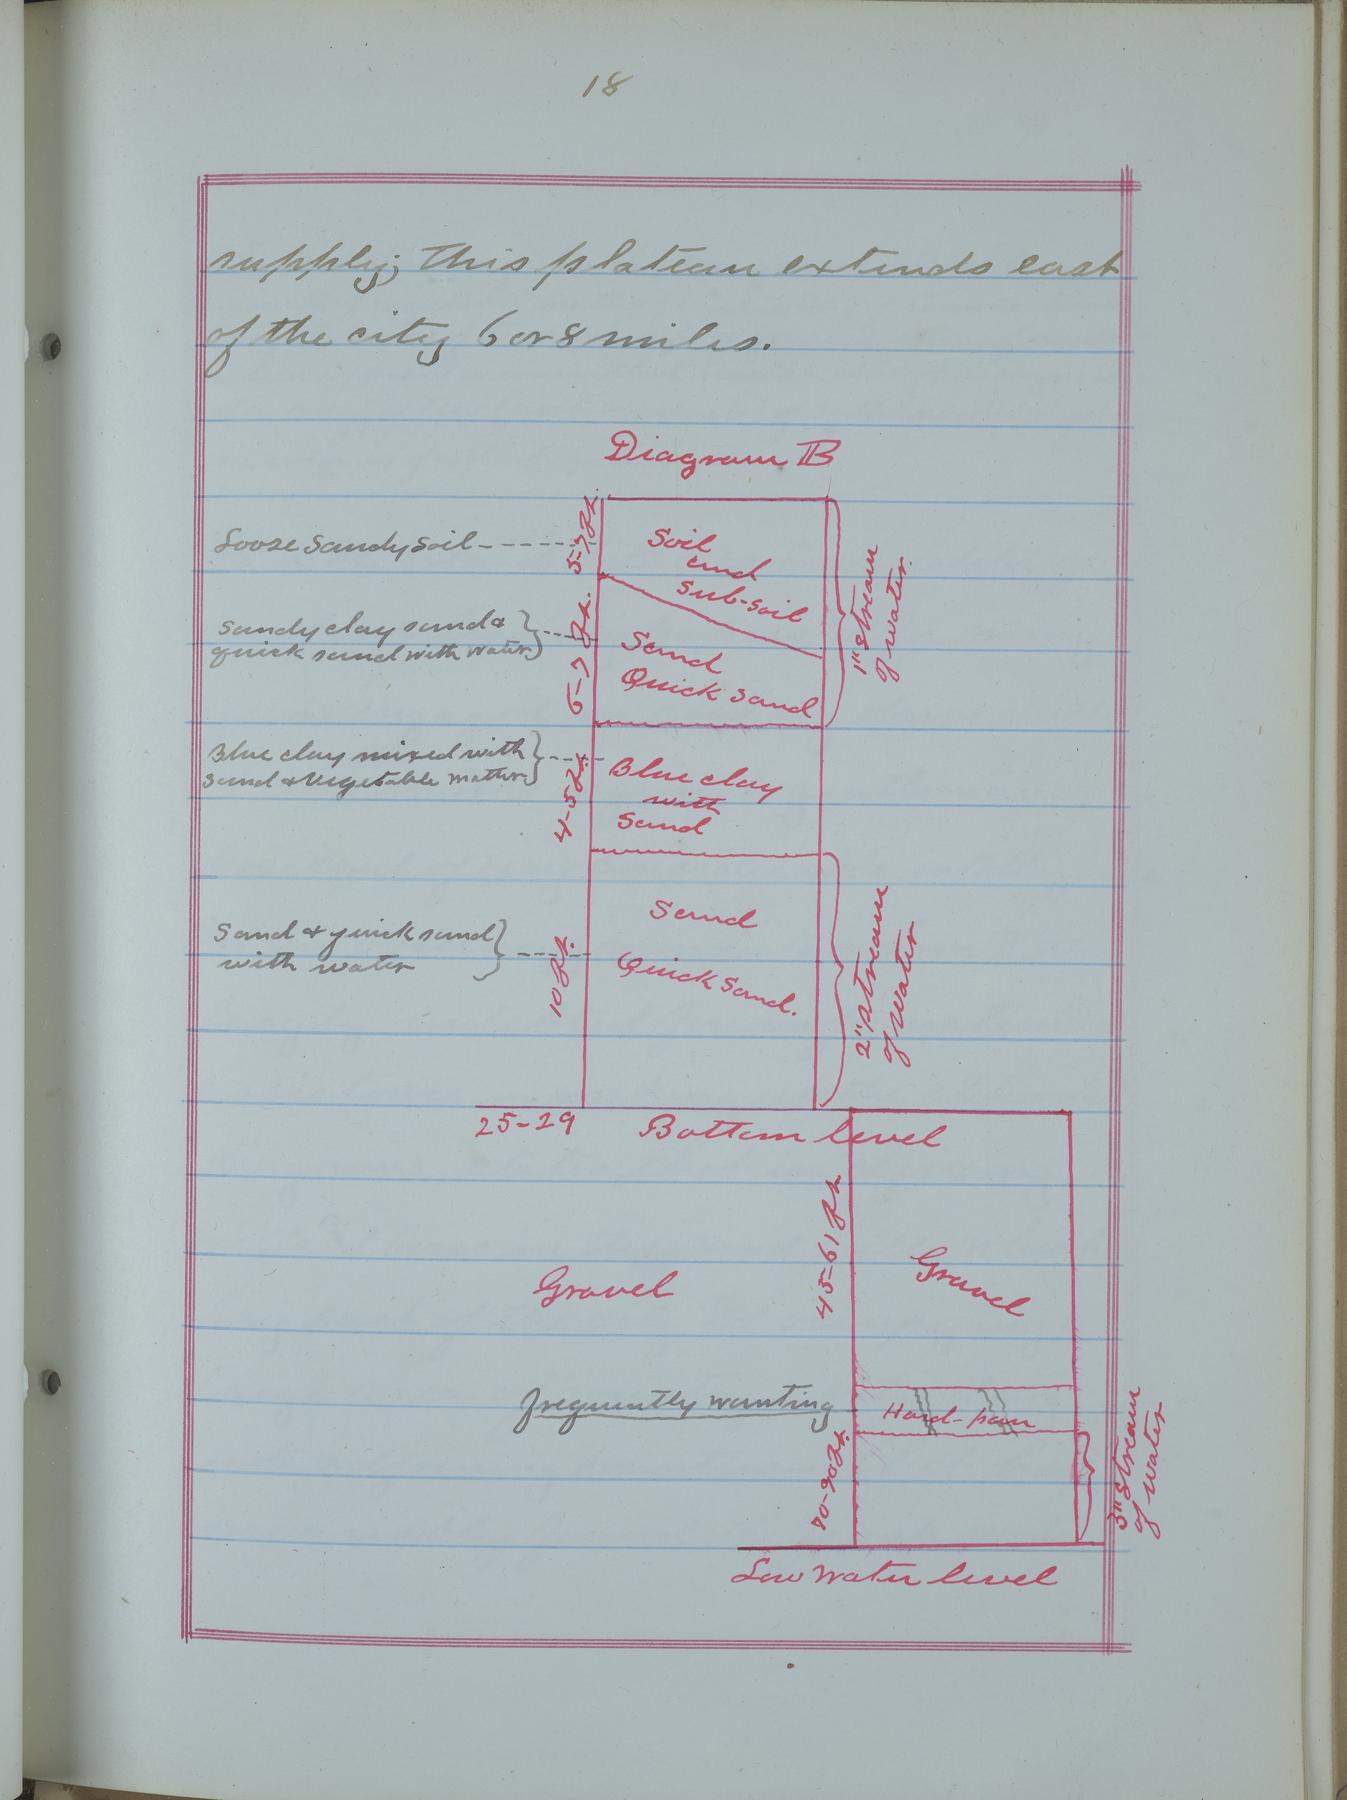 18
supply; This plateau extends east
of the city 6 or 8 miles.
Diagram B
Loose Sandy Soil
5-7 ft.
Soil
and
sub-soil
1" stream
of water.
Sandy clay sand &
quick sand with water.
6-7 ft.
Sand
Quick sand
Blue clay mixed with
Sand & Vegetable matter.
4-5 ft.
Blue clay
with
Sand
Sand & quick sand
with water
10 ft.
Sand
Quick Sand.
2" stream
of water
25-29
Bottom level
45-61 ft.
Gravel
Gravel
frequently wanting
Hard-pan
70-90 ft.
3" stream
of water
Low Water level